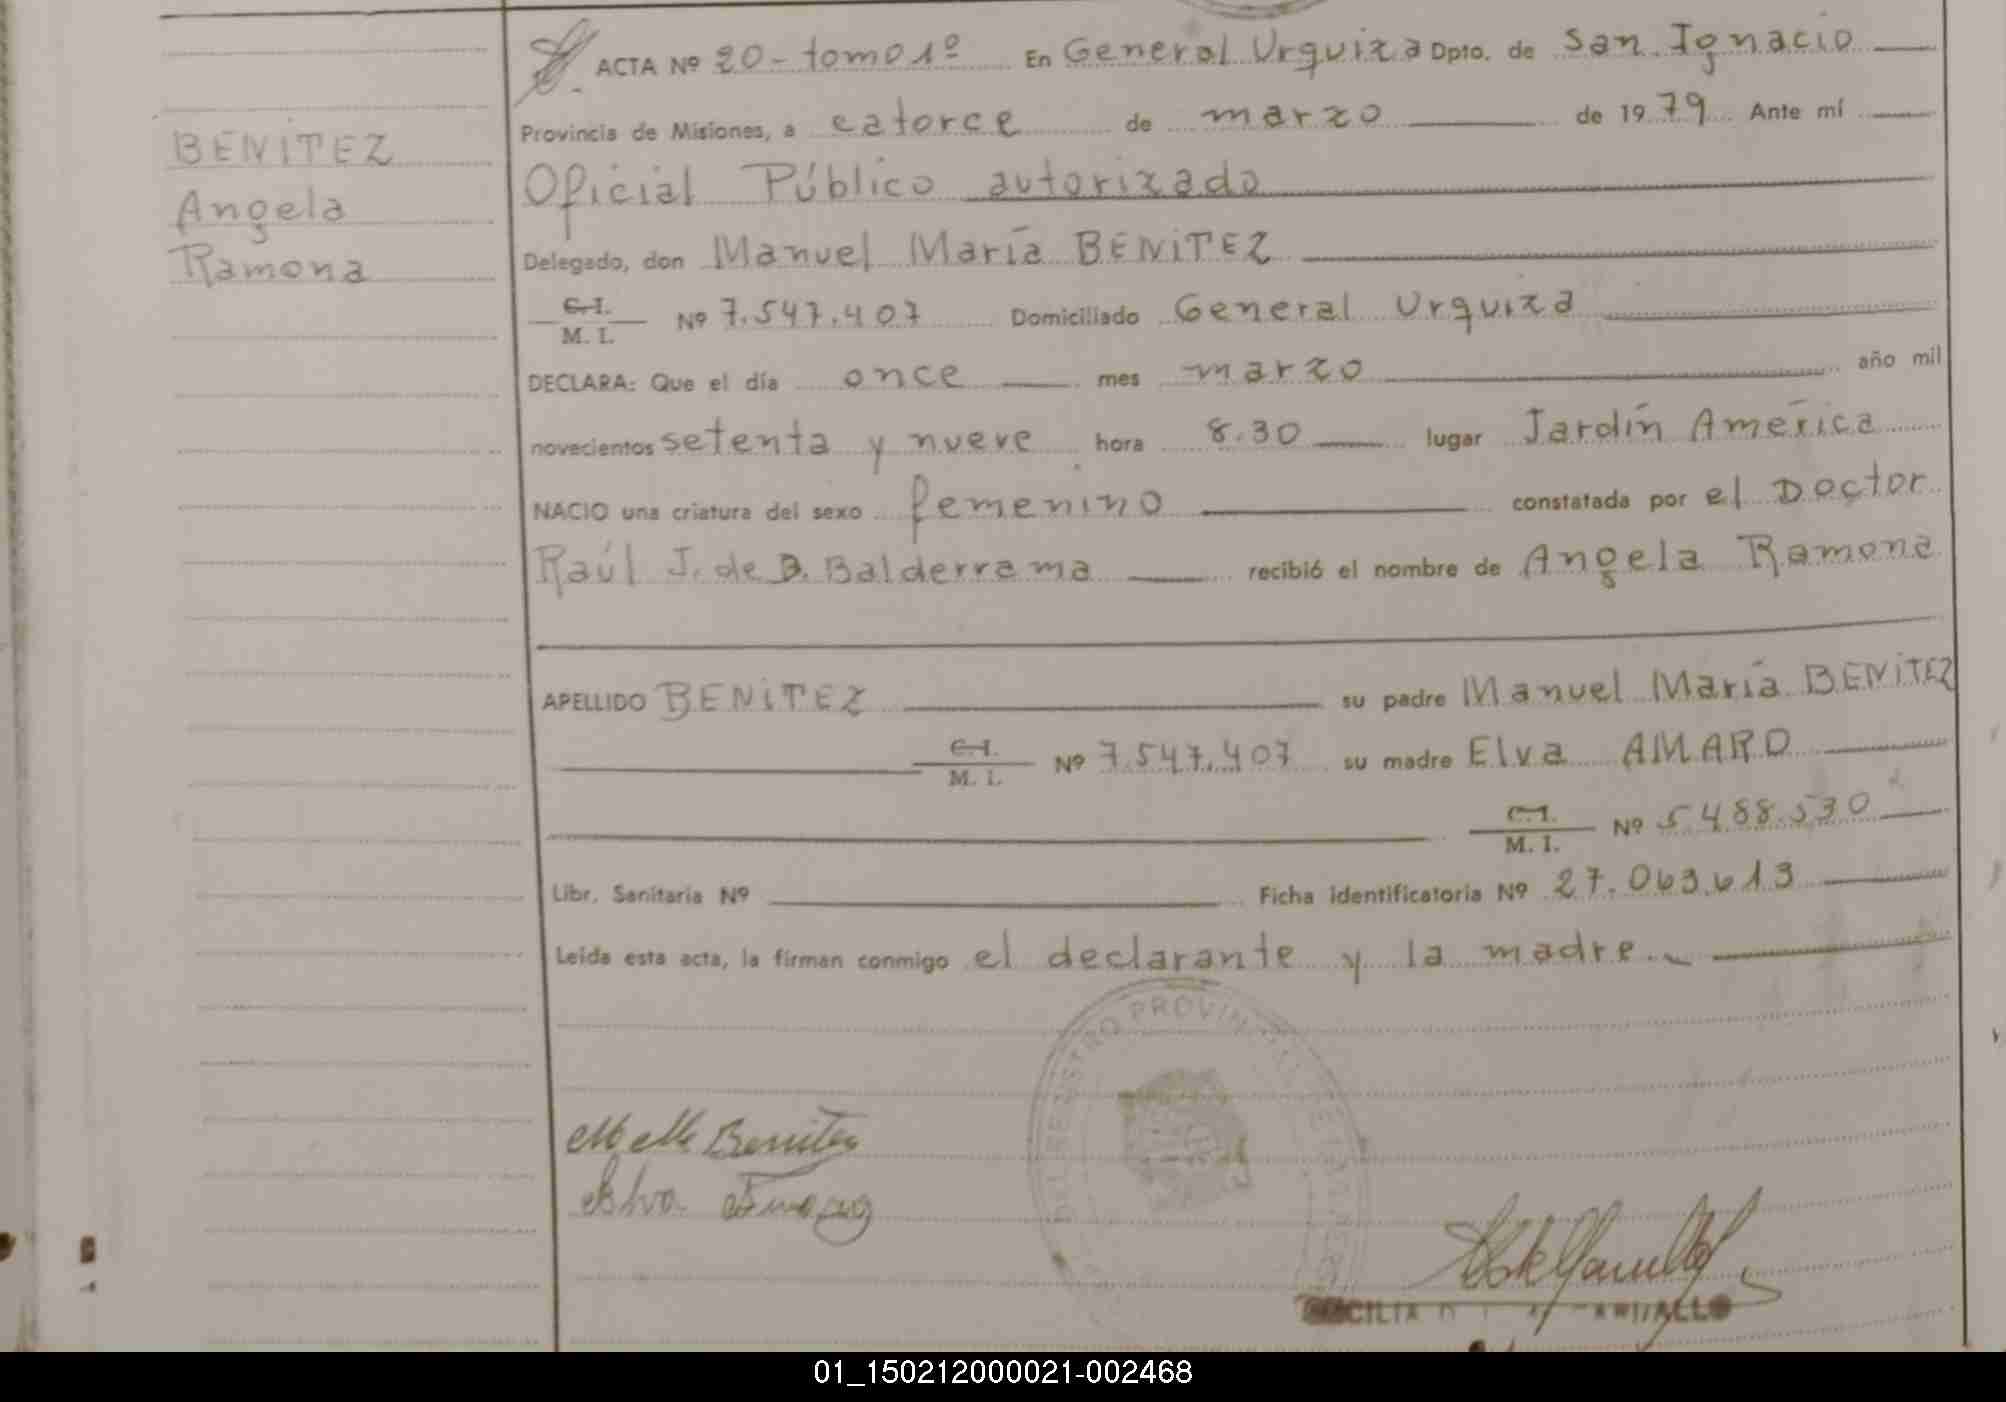 BENITEZ
Angela
Ramona
ACTA Nº 20 - tomo 1º En General Urquiza Dpto. de San Ignacio
Provincia de Misiones, a catorce de marzo de 1979 Ante mí
Oficial Público autorizado
Delegado, don Manuel María BENITEZ
C.I.
M. I. Nº 7.547.407 Domiciliado General Urquiza
DECLARA: Que el día once mes marzo año mil
novecientos setenta y nueve hora 8.30 lugar Jardín América
NACIO una criatura del sexo femenino constatada por el Doctor
Raúl J. de D. Balderrama recibió el nombre de Angela Ramona
APELLIDO BENITEZ su padre Manuel María BENITEZ
C.I.
M. I. Nº 7.547.407 su madre Elva AMARO
C.I.
M. I. Nº 5.488.530
Libr. Sanitaria Nº Ficha identificatoria Nº 27.063.613
Leída esta acta, la firman conmigo el declarante y la madre.
PROVIN
M M Benitez
Elva
CILIA
01_150212000021-002468